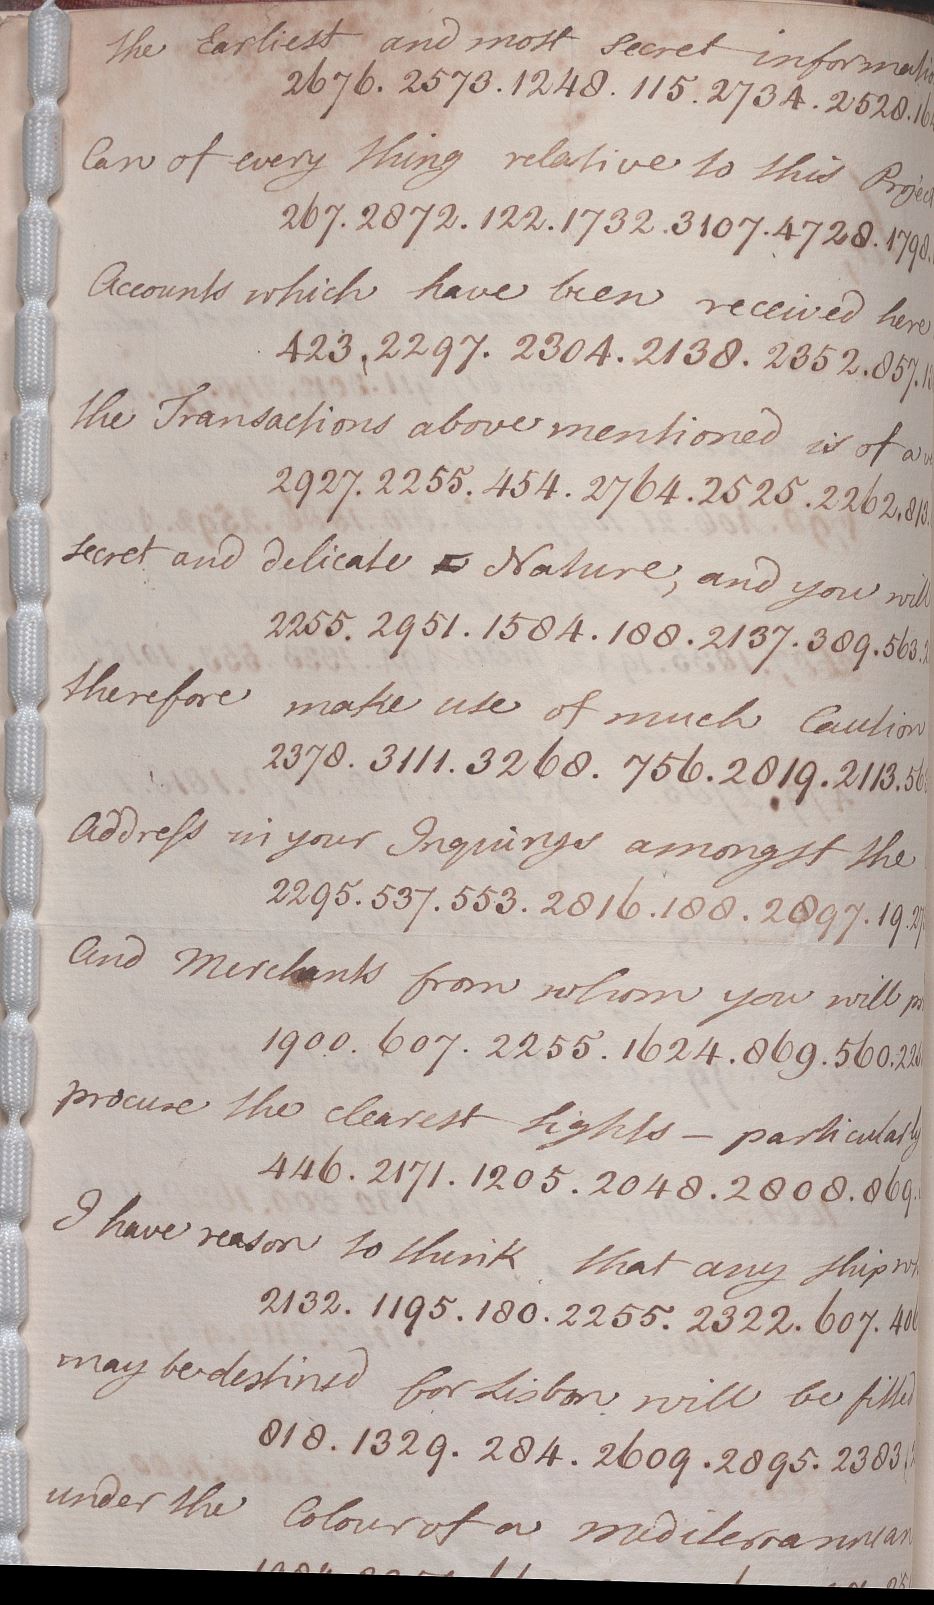 the Earliest and most secret informati
2676. 2573. 1248. 115. 2734. 2528. 16
Can of every thing relative to this Project
267. 2872. 122. 1732. 3107. 4728. 1798.
Accounts which have been received here
423. 2297. 2304. 2138. 2352. 857. 1
the Transactions above mentioned is of a
2927. 2255. 454. 2764. 2525. 2262. 813.
secret and delicate Nature, and you will
2255. 2951. 1584. 188. 2137. 389. 563.
therefore make use of much Caution
2378. 3111. 3268. 756. 2819. 2113. 56
Address in your Inquirys amongst the
2295. 537. 553. 2816. 188. 2897. 19.
and Merchants from whom you will
1900. 607. 2255. 1624. 869. 560. 22
procure the clearest lights – particularly
446. 2171. 1205. 2048. 2808. 869.
I have reason to think that any ship
2132. 1195. 180. 2255. 2322. 607. 40
may be destined for Lisbon will be fitted
818. 1329. 284. 2609. 2895. 2383
under the Colour of a mediterranean